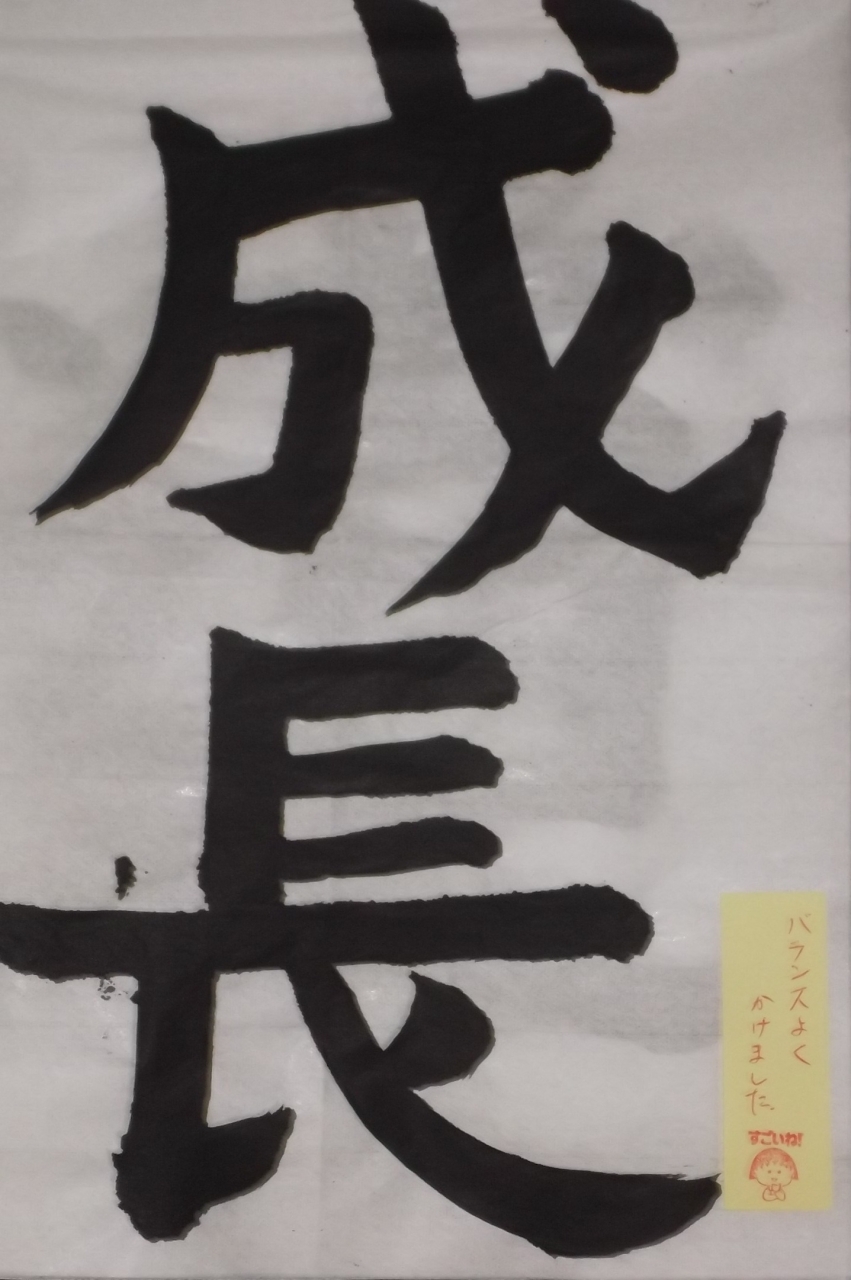 成長
バランスよく
かけました。
すごいね!